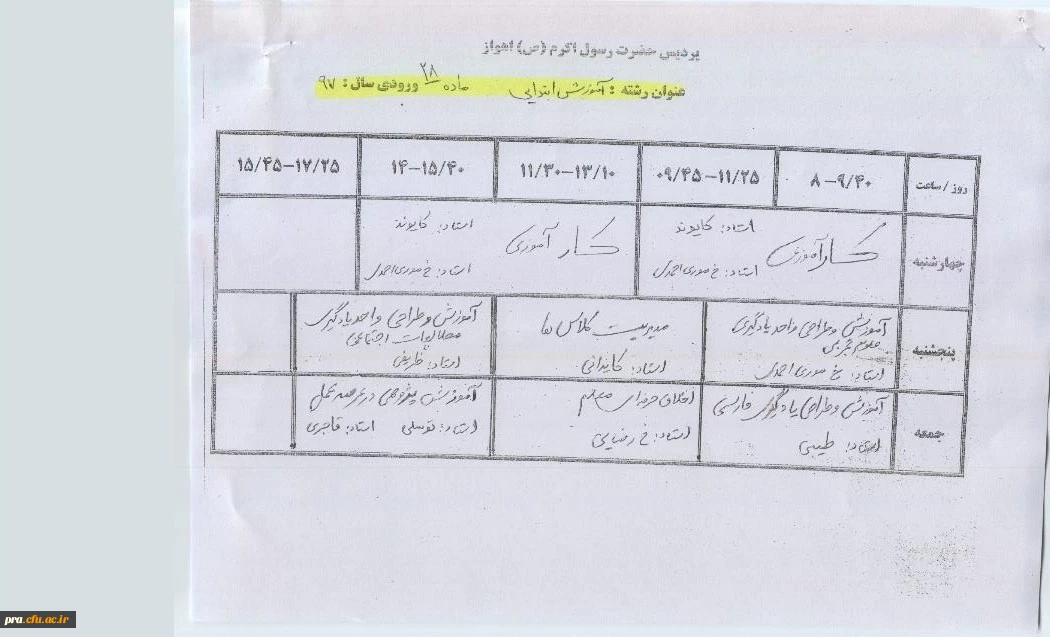 پردیس حضرت رسول اکرم (ص) اهواز
عنوان رشته : آموزش ابتدایی ماده ۲۸ ورودی سال : ۹۷
روز / ساعت ۸-۹/۴۰ ۰۹/۴۵-۱۱/۲۵ ۱۱/۳۰-۱۳/۱۰ ۱۴-۱۵/۴۰ ۱۵/۴۵-۱۷/۲۵
چهارشنبه
کارآموزی استاد: کایوند
استاد: خ موری احمدی
کارآموزی استاد: کایوند
استاد: خ موری احمدی
پنجشنبه
آموزش و طراحی واحد یادگیری
علوم تجربی
استاد: خ موری احمدی
مدیریت کلاس ها
استاد:
آموزش و طراحی واحد یادگیری
مطالعات اجتماعی
استاد: ظریفی
جمعه
آموزش و طراحی یادگیری فارسی
استاد: طیبی
اخلاق حرفه ای معلم
استاد: خ رضایی
آموزش پژوهی در عرصه عمل
استاد: توسلی استاد: قاجری
pra.cfu.ac.ir